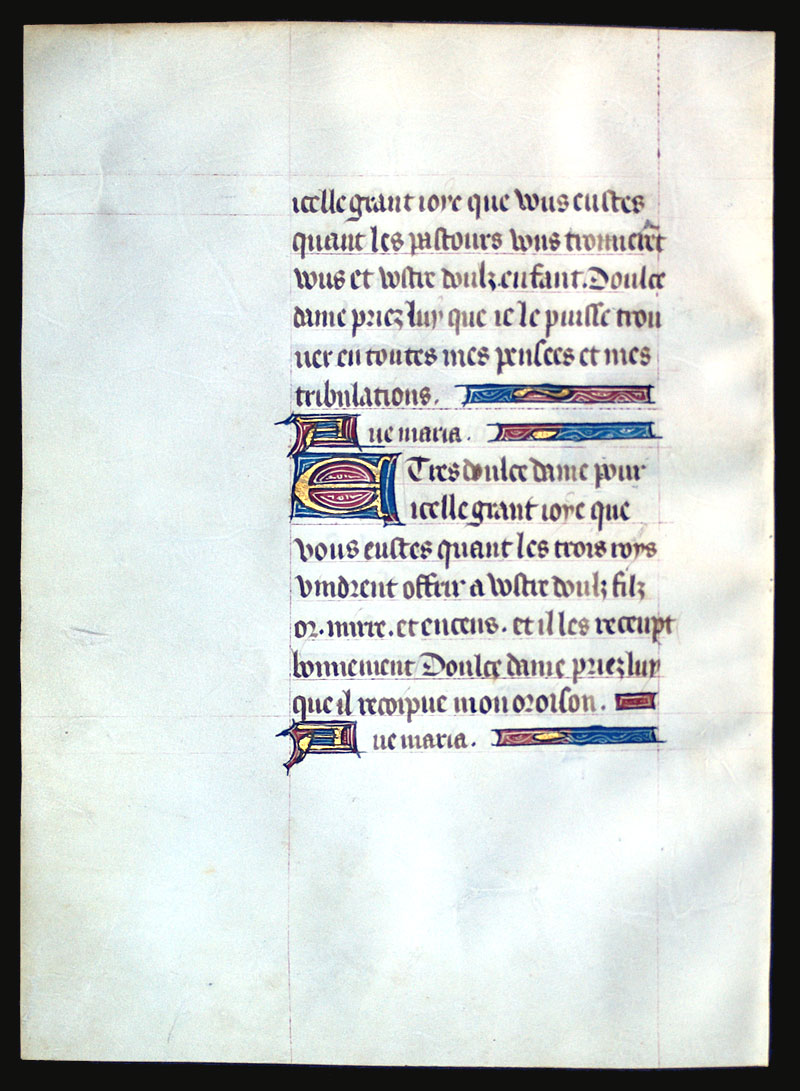 icelle grant ioye que vous eustes
quant les pastours vous trouuerẽt
vous et vostre doulz enfant. Doulce
dame priez luy que ie le puisse trou
uer en toutes mes pensees et mes
tribulations.
Aue maria.
E Tres doulce dame pour
icelle grant ioye que
vous eustes quant les trois roys
vindrent offrir a vostre doulz filz
or. mirre. et encens. et il les receupt
bonnement Doulce dame priez luy
que il recoipue mon oroison.
Aue maria.